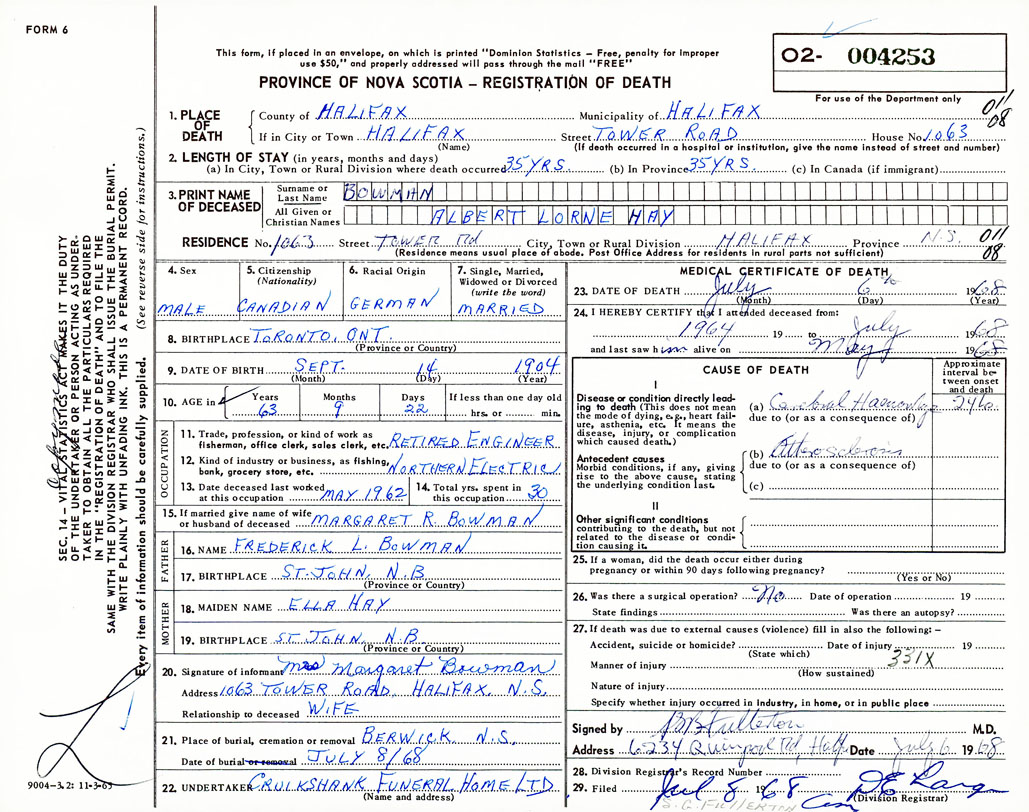 FORM 6
This form, if placed in an envelope, on which is printed "Dominion Statistics – Free, penalty for improper
use $50," and properly addressed will pass through the mail "FREE"
O2- 004253
PROVINCE OF NOVA SCOTIA – REGISTRATION OF DEATH
For use of the Department only
011
08
1. PLACE OF DEATH County of HALIFAX Municipality of HALIFAX
If in City or Town HALIFAX Street TOWER ROAD House No. 1063
(Name) (If death occurred in a hospital or institution, give the name instead of street and number)
2. LENGTH OF STAY (in years, months and days)
(a) In City, Town or Rural Division where death occurred 35 YRS. (b) In Province 35 YRS. (c) In Canada (if immigrant)
3. PRINT NAME OF DECEASED Surname or Last Name BOWMAN
All Given or Christian Names ALBERT LORNE HAY
RESIDENCE No. 1063 Street TOWER Rd City, Town or Rural Division HALIFAX Province N.S. 011
(Residence means usual place of abode. Post Office Address for residents in rural parts not sufficient) 08
4. Sex MALE
5. Citizenship (Nationality) CANADIAN
6. Racial Origin GERMAN
7. Single, Married, Widowed or Divorced (write the word) MARRIED
8. BIRTHPLACE TORONTO, ONT.
(Province or Country)
9. DATE OF BIRTH SEPT. 14 1904
(Month) (Day) (Year)
10. AGE in Years Months Days If less than one day old
63 9 22 hrs. or min.
OCCUPATION
11. Trade, profession, or kind of work as
fisherman, office clerk, sales clerk, etc. RETIRED ENGINEER
12. Kind of industry or business, as fishing,
bank, grocery store, etc. NORTHERN ELECTRIC
13. Date deceased last worked
at this occupation MAY 1962
14. Total yrs. spent in
this occupation 30
15. If married give name of wife
or husband of deceased MARGARET R. BOWMAN
FATHER
16. NAME FREDERICK L. BOWMAN
17. BIRTHPLACE ST. JOHN, N.B
(Province or Country)
MOTHER
18. MAIDEN NAME ELLA HAY
19. BIRTHPLACE ST JOHN, N.B.
(Province or Country)
20. Signature of informant Mrs Margaret Bowman
Address 1063 TOWER ROAD, HALIFAX, N.S.
Relationship to deceased WIFE
21. Place of burial, cremation or removal BERWICK N.S.
Date of burial or removal JULY 8/68
22. UNDERTAKER CRUIKSHANK FUNERAL HOME LTD
(Name and address)
MEDICAL CERTIFICATE OF DEATH
23. DATE OF DEATH July 6th 1968
(Month) (Day) (Year)
24. I HEREBY CERTIFY that I attended deceased from:
1964 19 to July 1968
and last saw him alive on May 1968
CAUSE OF DEATH
Approximate interval between onset and death
I
Disease or condition directly leading to death (This does not
mean the mode of dying, e.g., heart failure, asthenia, etc. It means the
disease, injury, or complication
which caused death.)
(a) Cerebral Haemorrhage
due to (or as a consequence of)
Antecedent causes
Morbid conditions, if any, giving
rise to the above cause, stating
the underlying condition last.
(b) Atherosclerosis
due to (or as a consequence of)
(c)
II
Other significant conditions
contributing to the death, but not
related to the disease or condition causing it.
25. If a woman, did the death occur either during
pregnancy or within 90 days following pregnancy?
(Yes or No)
26. Was there a surgical operation? No Date of operation 19
State findings Was there an autopsy?
27. If death was due to external causes (violence) fill in also the following: –
Accident, suicide or homicide? Date of injury 19
(State which) 331X
Manner of injury
(How sustained)
Nature of injury
Specify whether injury occurred in Industry, in home, or in public place
Signed by M.D.
Address 6234 Quinpool Rd, Halfx Date July 6 1968
28. Division Registrar's Record Number
29. Filed Jul 8 1968
(Division Registrar)
S.G. FULLERTON
SEC. 14 – VITAL STATISTICS ACT MAKES IT THE DUTY
OF THE UNDERTAKER OR PERSON ACTING AS UNDER-
TAKER TO OBTAIN ALL THE PARTICULARS REQUIRED
IN THE "REGISTRATION OF DEATH" AND TO FILE THE
SAME WITH THE DIVISION REGISTRAR WHO SHALL ISSUE THE BURIAL PERMIT.
WRITE PLAINLY WITH UNFADING INK. THIS IS A PERMANENT RECORD.
Every item of information should be carefully supplied. (See reverse side for instructions.)
9004-3.2: 11-3-65